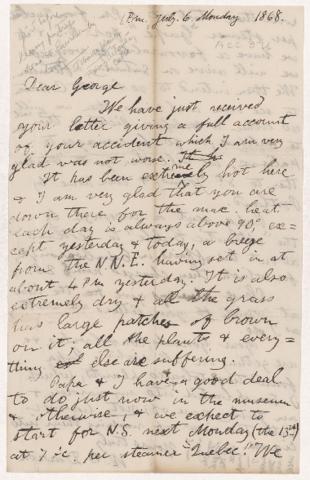 1 P.M. July. 6. Monday 1868.
Dear George
We have just received
your letter giving a full account
of your accident which I am very
glad was not worse.
It has been extremely hot here
& I am very glad that you are
down there for the max. heat
each day is always above 90° ex=
cept yesterday & today, a breeze
from the N.N.E. having set in at
about 4 P.M. yesterday. It is also
extremely dry & all the grass
has large patches of brown
on it; all the plants & every=
thing else are suffering.
Papa & I have a good deal
to do just now in the museum
& otherwise, & we expect to
start for N.S. next Monday (the 13th)
at 7 o'c. per steamer "Quebec!" We